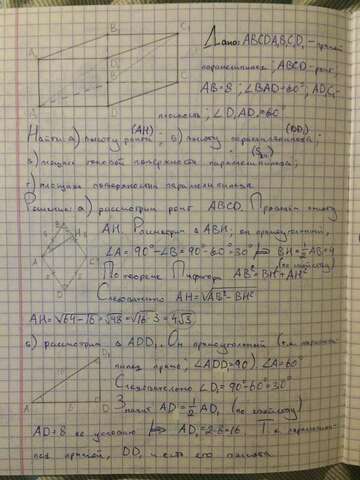 Дано: ABCDA₁B₁C₁D₁ - прямой
параллелепипед; ABCD - ромб
AB=8; ∠BAD=60°;
плоскость; ∠D₁AD=60°
Найти: а) высоту ромба (AH); б) высоту параллелепипеда (DD₁);
в) площадь боковой поверхности параллелепипеда (Sбп);
г) площадь поверхности параллелепипеда.
Решение: а) рассмотрим ромб ABCD. Проведём высоту
AH. Рассмотрим △ABH, он прямоугольный,
∠A=90°-∠B=90°-60°=30° ⟹ BH=½AB=4
По теореме Пифагора AB²=BH²+AH² (по свойству)
Следовательно AH=√AB²-BH²
AH=√64-16=√48=√16·3=4√3
б) рассмотрим △ADD₁. Он прямоугольный (т.к. паралле
пипед прям; ∠ADD₁=90) ∠A=60°
Следовательно ∠D₁=90°-60°=30°
Значит AD=½AD₁ (по свойству)
AD=8 по условию ⟹ AD₁=2·8=16 Т.к. параллеле
пед прямой, DD₁ и есть его высота